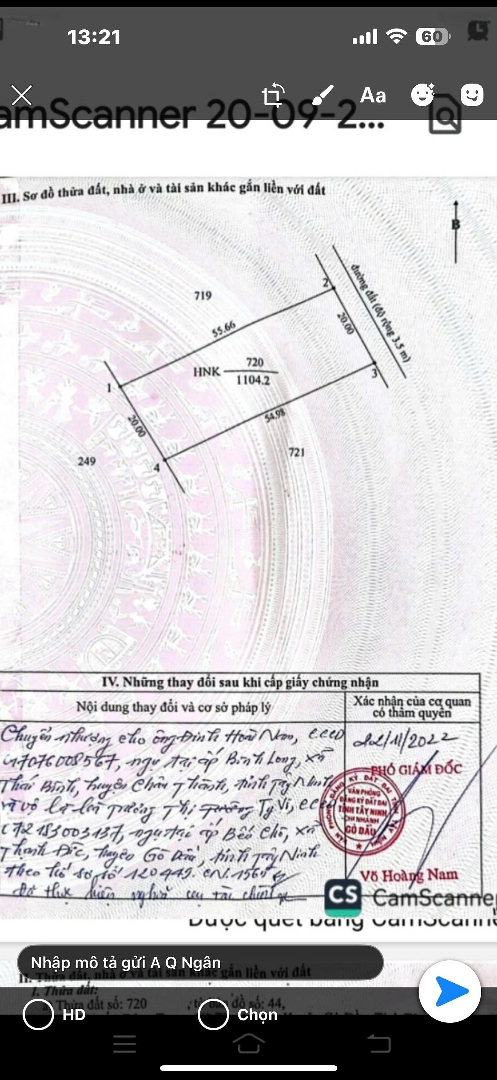 13:21
60
Aa
amScanner 20-09-2...
III. Sơ đồ thửa đất, nhà ở và tài sản khác gắn liền với đất
B
719
2
đường đất (độ rộng 3.5 m)
55.66
20.00
HNK 720
1104.2
1
3
20.00
54.98
249
4
721
IV. Những thay đổi sau khi cấp giấy chứng nhận
Nội dung thay đổi và cơ sở pháp lý
Xác nhận của cơ quan
có thẩm quyền
Chuyển nhượng cho ông Đinh Hoài CCCD
22/11/2022
ngụ tại ấp Bình Long, xã
PHÓ GIÁM ĐỐC
Thái Bình, huyện Châu Thành, tỉnh Tây Ninh
VĂN PHÒNG
ĐĂNG KÝ ĐẤT ĐAI
TỈNH TÂY NINH
CHI NHÁNH
GÒ DẦU
và vợ là bà Trương Thị Tường Vi, CCCD
ngụ tại ấp Bến xã
Thạnh Đức, huyện Gò Dầu, tỉnh Tây Ninh
Võ Hoàng Nam
theo hồ sơ số
đã thực hiện nghĩa vụ tài chính
CS CamScanner
Được quét bằng CamScann
Nhập mô tả gửi A Q Ngân
II. Thửa đất, nhà ở và tài sản khác gắn liền với đất
1. Thửa đất:
Thửa đất số: 720 , tờ bản đồ số: 44,
HD
Chọn